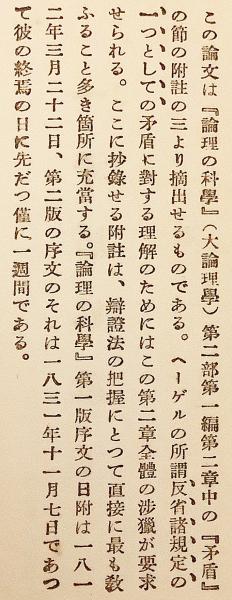 この論文は『論理の科學』(大論理學)第二部第一編第二章中の『矛盾』
の節の附註の三より摘出せるものである。ヘーゲルの所謂反省諸規定の
一つとしての矛盾に對する理解のためにはこの第二章全體の涉獵が要求
せられる。ここに抄錄せる附註は、辯證法の把握にとつて直接に最も敎
ふること多き箇所に充當する。『論理の科學』第一版序文の日附は一八一
二年三月二十二日、第二版の序文のそれは一八三一年十一月七日であつ
て彼の終焉の日に先だつ僅に一週間である。